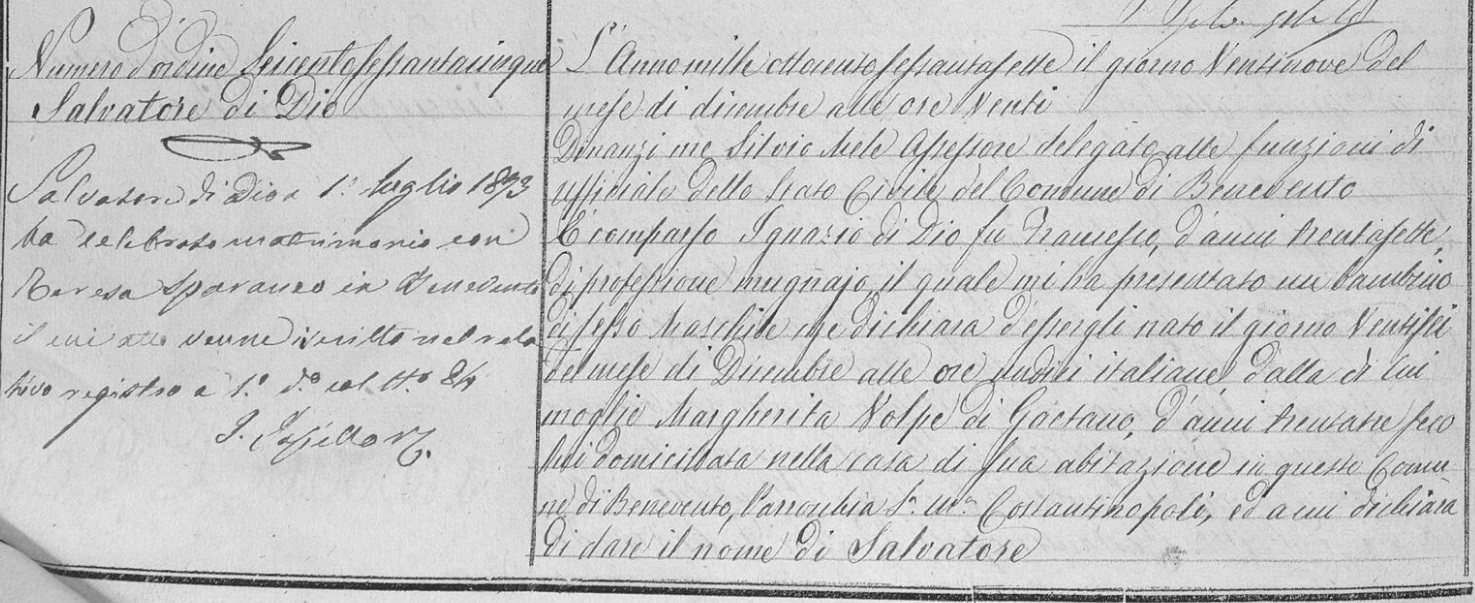 Numero d'ordine Seicentosessantacinque
Salvatore di Dio
Salvatore di Dio a 1° luglio 1893
ha celebrato matrimonio con
Teresa Sparanzo in Benevento
il cui atto venne iscritto nel rela
tivo registro a 1° d.o col N.o 84
L'Anno mille ottocentosessantasette il giorno Ventinove del
mese di dicembre alle ore Venti
Dinanzi me Silvio Mele Assessore delegato alle funzioni di
uffiziale dello Stato Civile del Comune di Benevento
È comparso Ignazio di Dio fu Francesco, d'anni trentasette,
di professione mugnajo, il quale mi ha presentato un bambino
di sesso Maschile che dichiara d'essergli nato il giorno Ventisei
del mese di Dicembre alle ore undici italiane, dalla di lui
moglie Margherita Volpe di Gaetano, d'anni trentatre seco
lui domiciliata nella casa di sua abitazione in questo Comu
ne di Benevento, Parrocchia S.a M.a Costantinopoli, ed a cui dichiara
di dare il nome di Salvatore